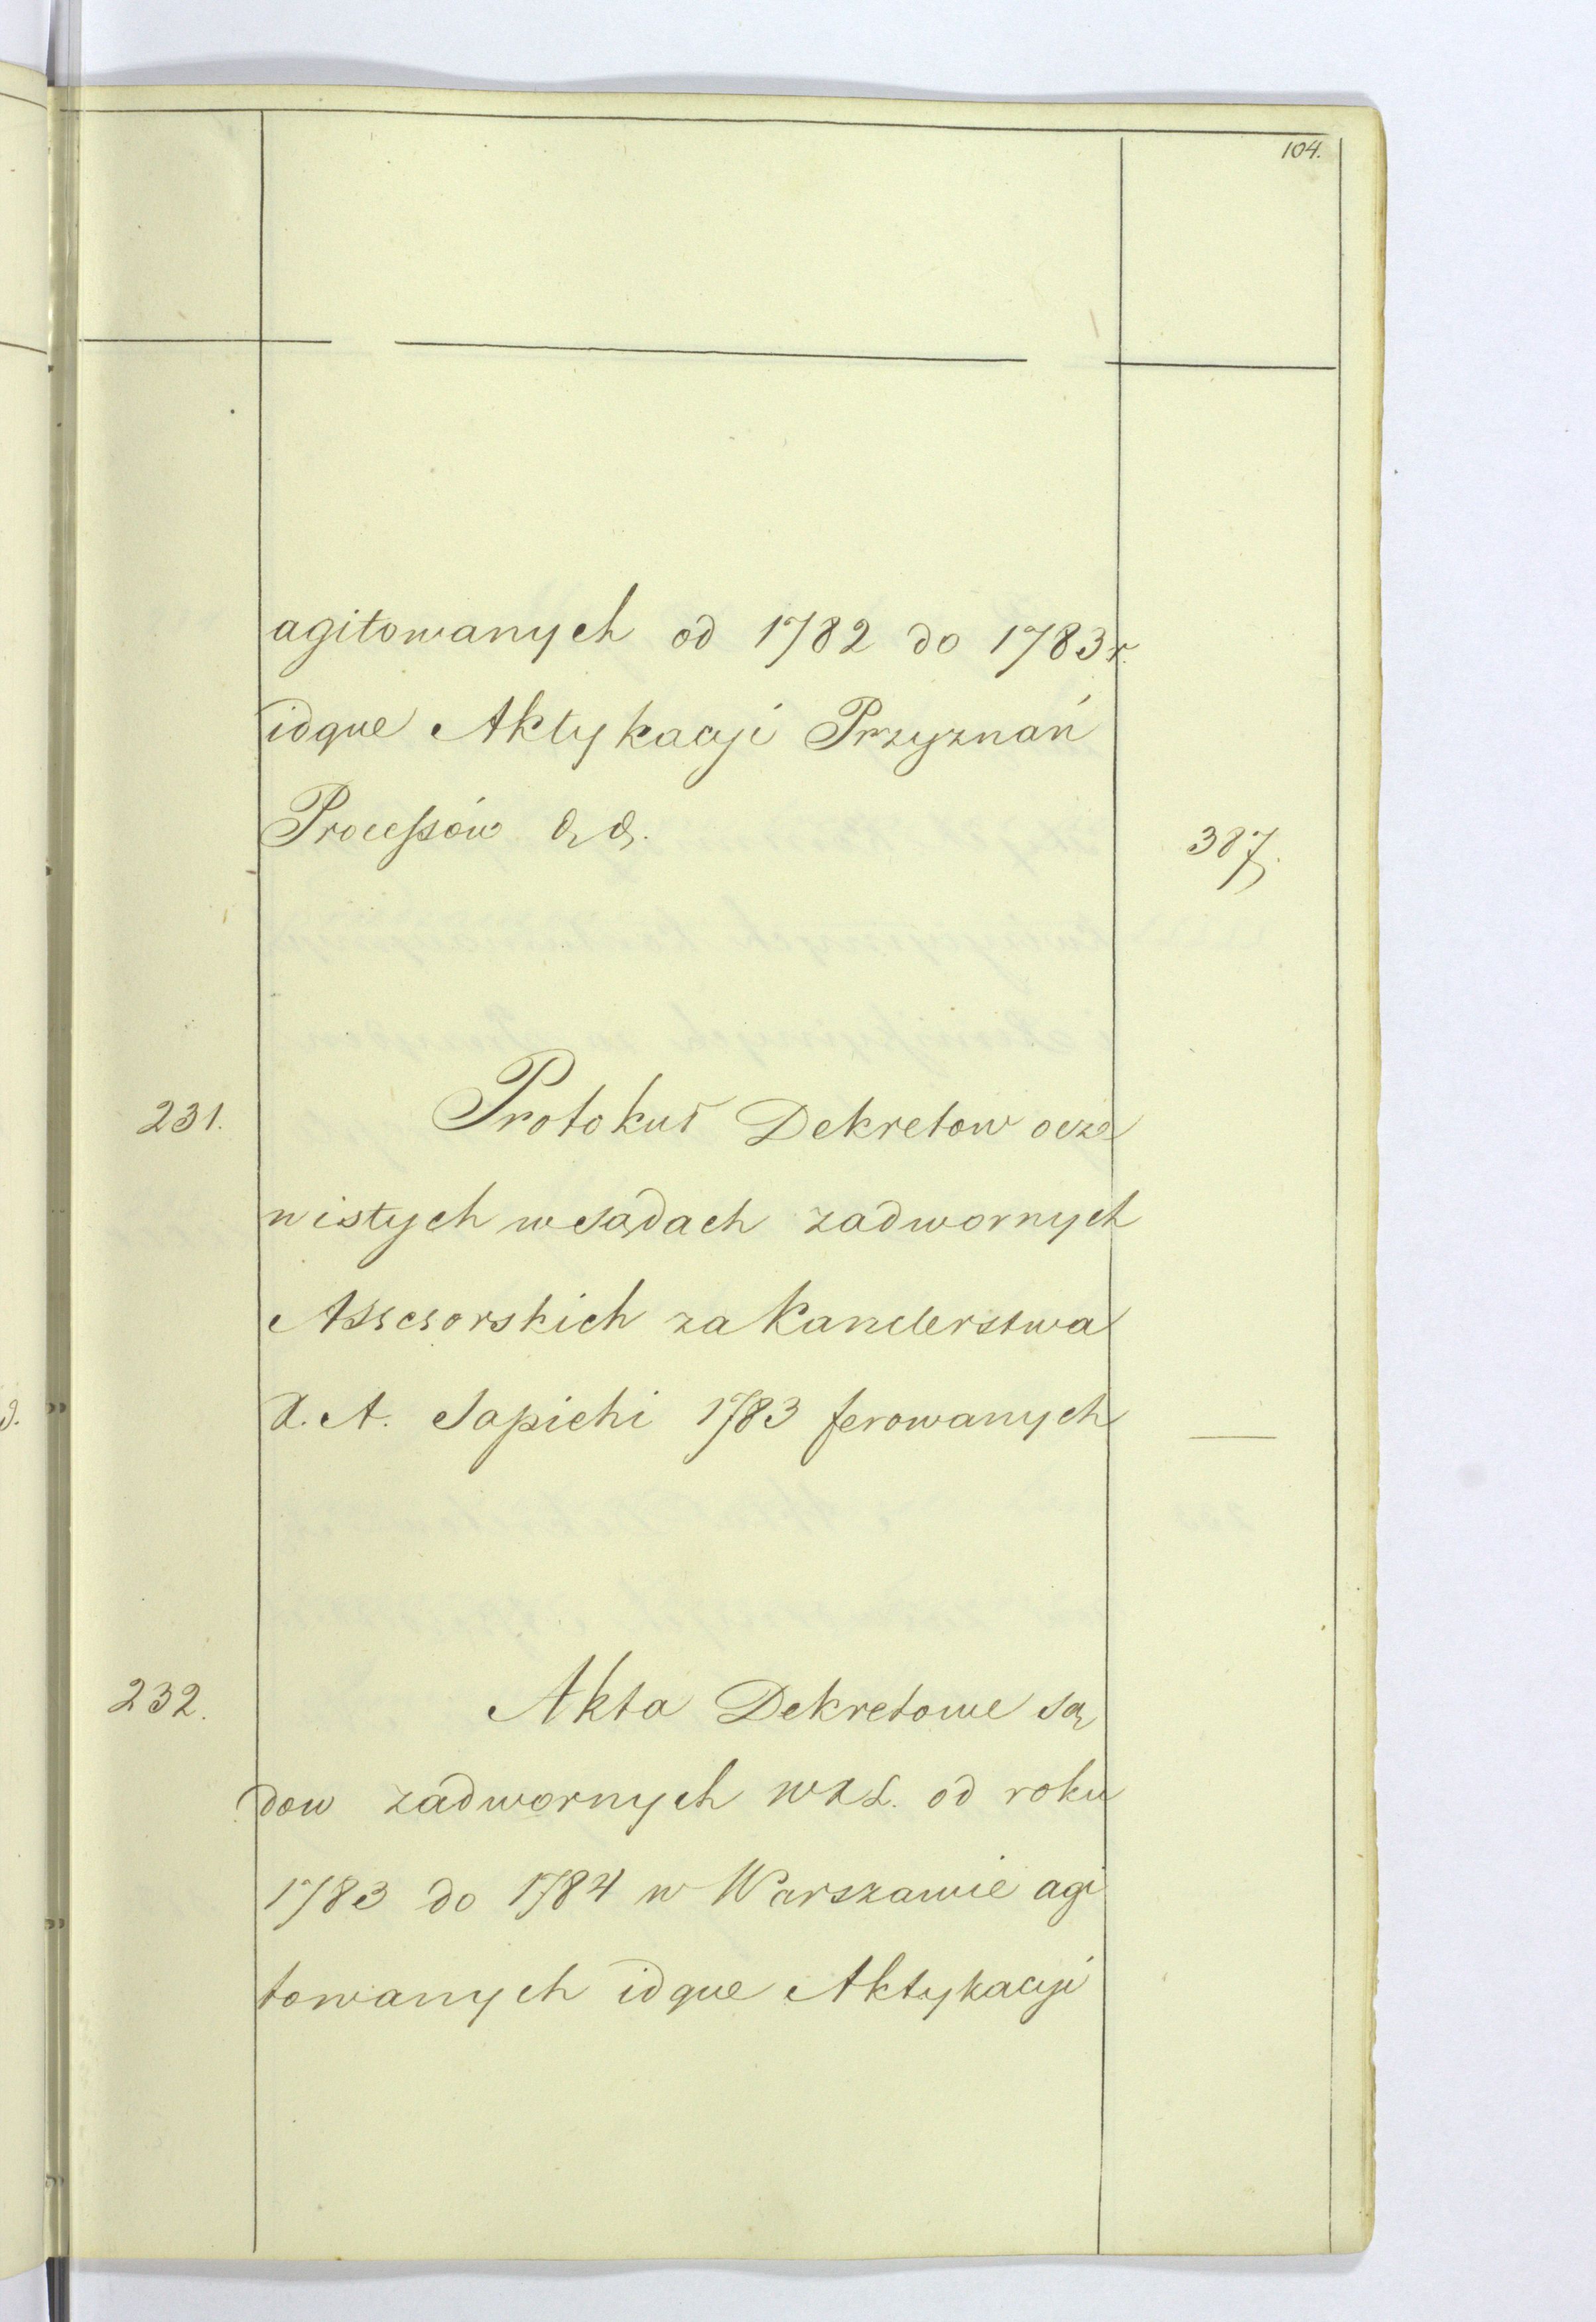 104.
agitowanych od 1782 do 1783 r.
idque Aktykacyi Przyznań
Processów &, &.
387.
231.
Protokuł Dekretow ocze
wistych w Sądach zadwornych
Assesorskich za Kanclerstwa
A. Sapiehi 1783 ferowanych
232.
Akta Dekretowe Są
dow zadwornych WXL. od roku
1783 do 1784 w Warszawie agi
towanych idque Aktykacyi